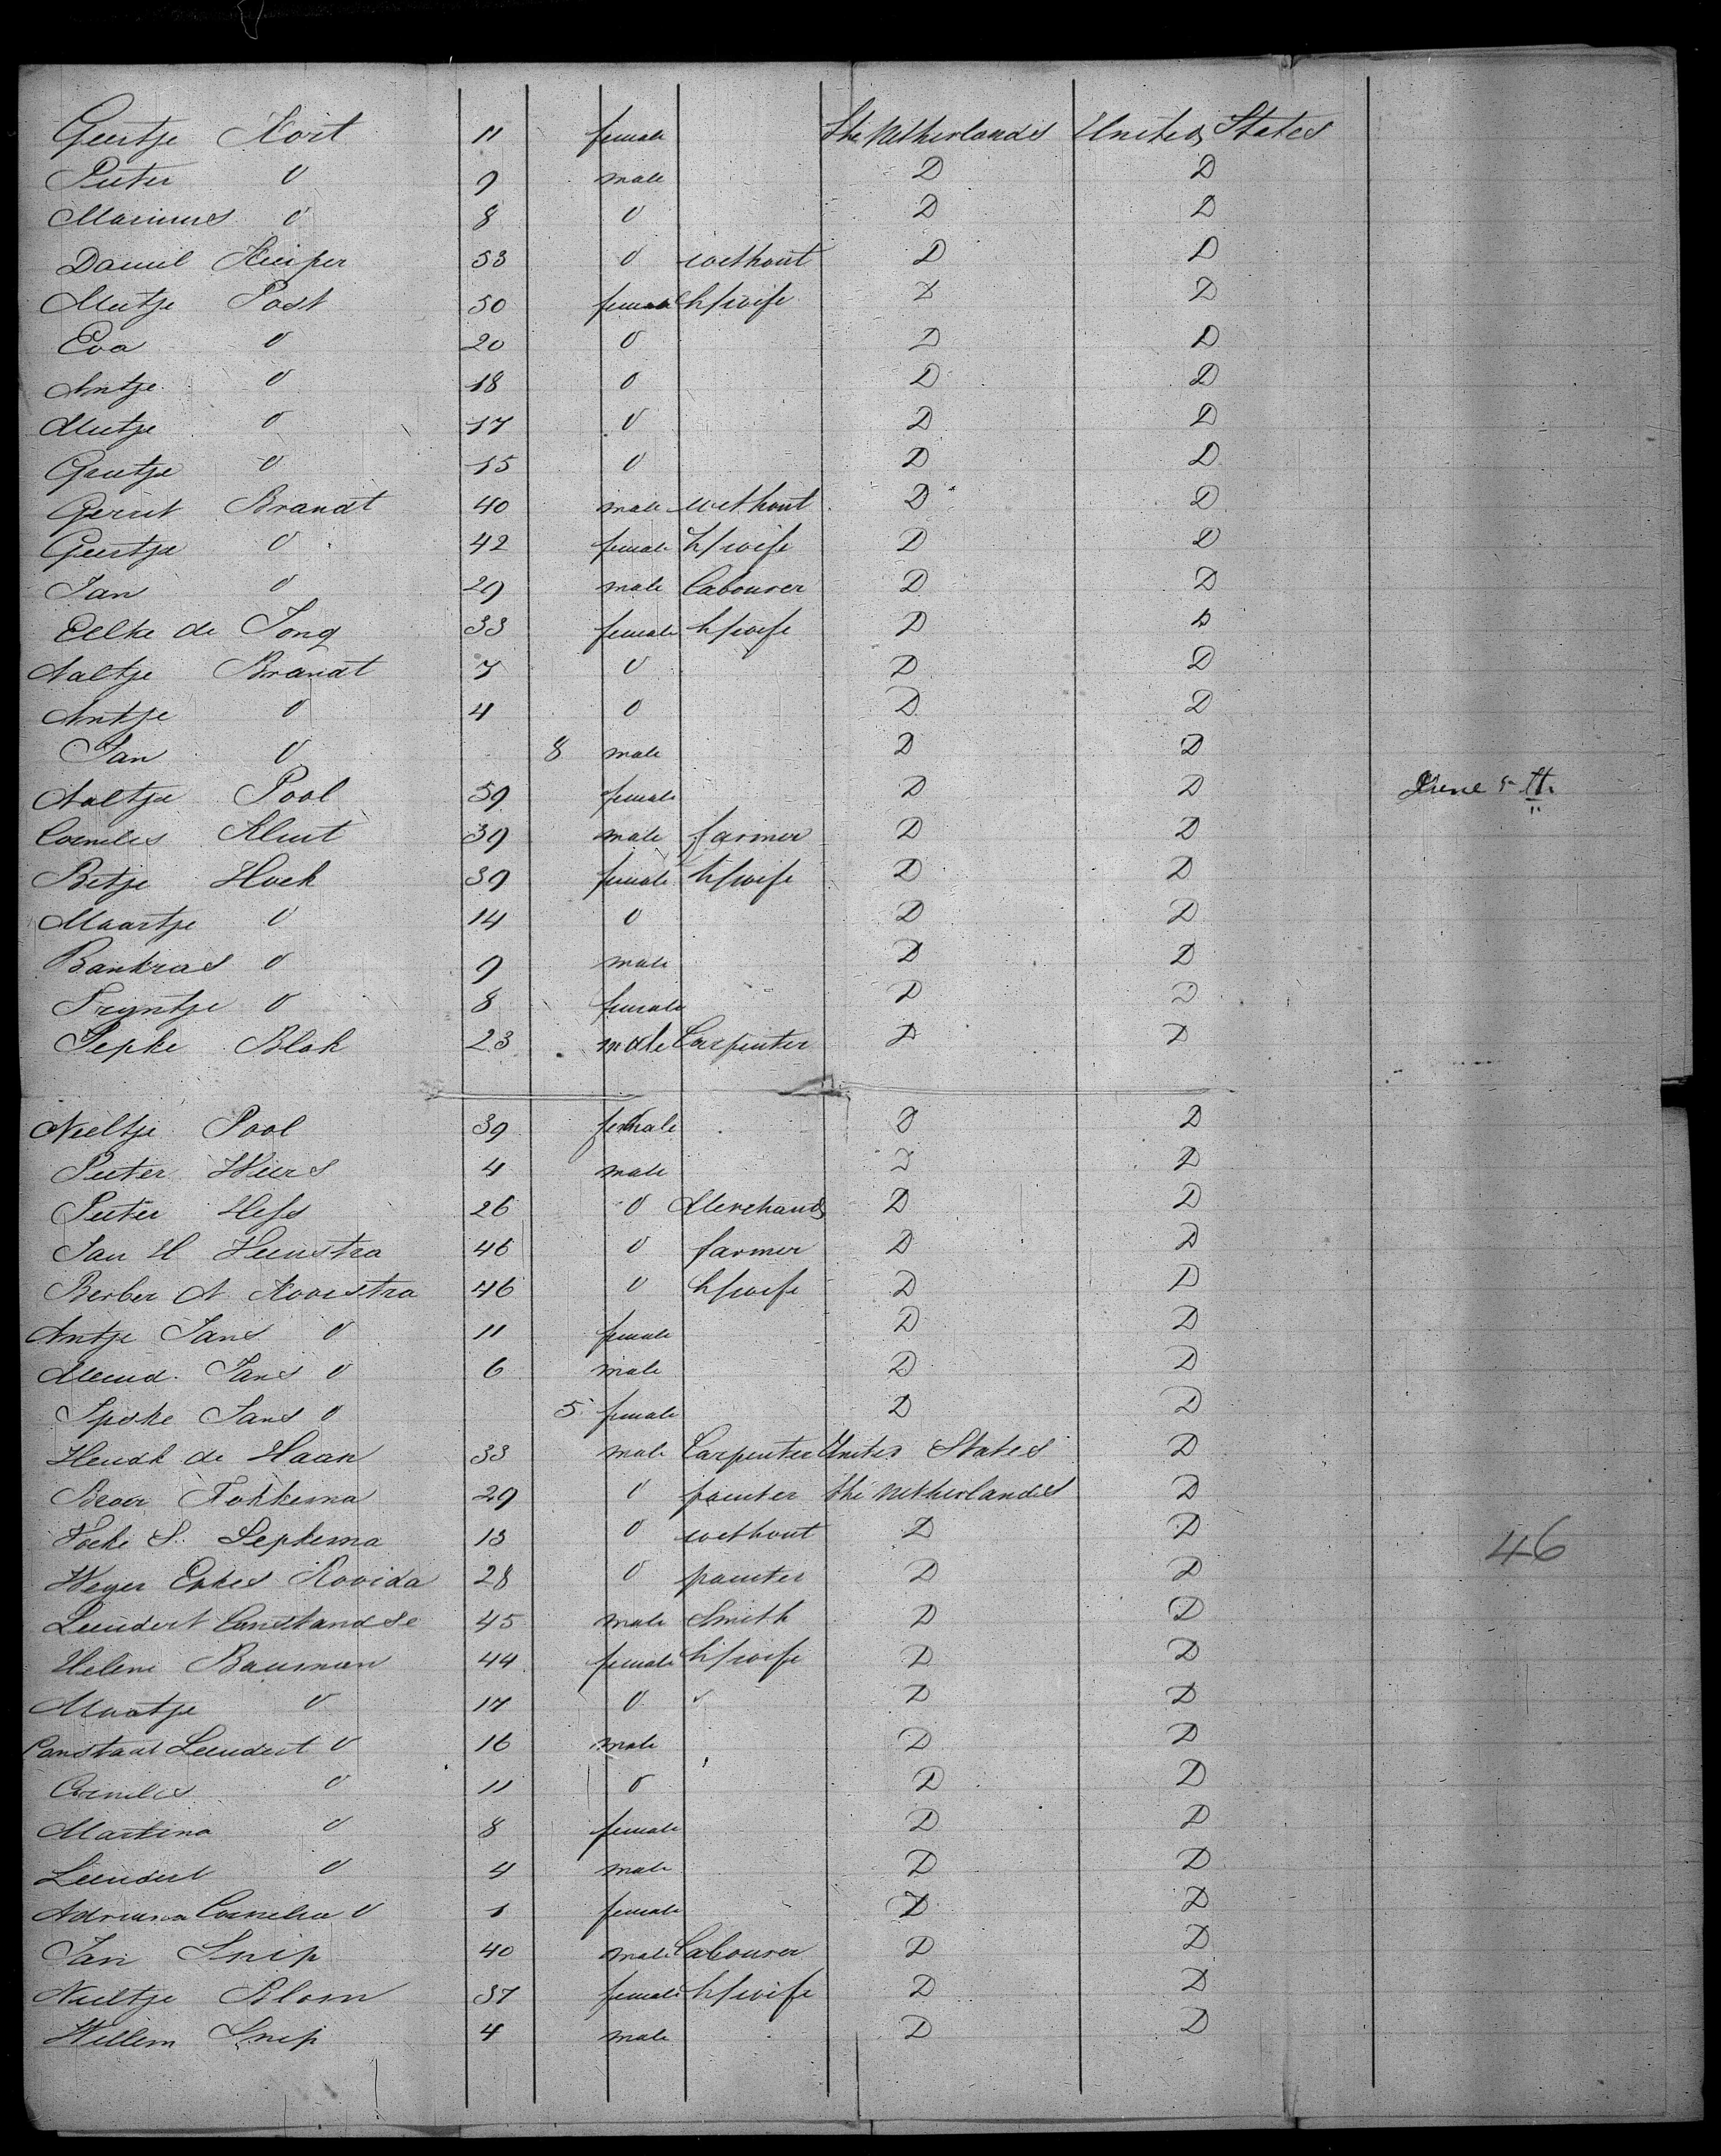 Geertje Kort 11 female The Netherlands United States
Pieter 0 9 male D D
Marinus 0 8 0 D D
Daniel Kuiper 53 0 without D D
Meitje Post 50 female h/wife D D
Eva 0 20 0 D D
Antje 0 18 0 D D
Meitje 0 17 0 D D
Grietje 0 15 0 D D
Gerrit Brandt 40 male without D D
Geertje 0 42 female h/wife D D
Jan 0 29 male Labourer D D
Eelke de Jong 33 female h/wife D D
Aaltje Brandt 7 0 D D
Antje 0 4 0 D D
Jan 0 8 male D D
Aaltje Pool 59 female D D June 5th
Cornelis Kluit 39 male farmer D D
Betje Hoek 39 female h/wife D D
Maartje 0 14 0 D D
Bankras 0 9 male D D
Tryntje 0 8 female D D
Jepke Blok 23 male Carpenter D D
Neeltje Pool 39 female D D
Pieter 4 male D D
Pieter Hess 26 0 Merchand D D
Jan H Heinstra 46 0 farmer D D
Berber A Kooistra 46 0 h/wife D D
Antje Jans 0 11 female D D
Meind. Jans 0 6 male D D
Jpske Jans 0 5 female D D
Hendk de Haan 33 male Carpenter United States D
Broer Fokkema 29 0 painter the Netherlands D
Focke S. Sepkema 13 0 without D D
Weyer Enkes Rovida 28 0 painter D D
Leendert Constandse 45 male Smith D D
Helene Bauman 44 female h/wife D D
Maatje 0 17 0 D D
Constant Leendert 0 16 male D D
Cornelis 0 11 0 D D
Martina 0 8 female D D
Leendert 0 4 male D D
Adriana Cornelia 0 1 female D D
Jan Snip 40 male Labourer D D
Neeltje Blom 37 female h/wife D D
Willem Snip 4 male D D
46